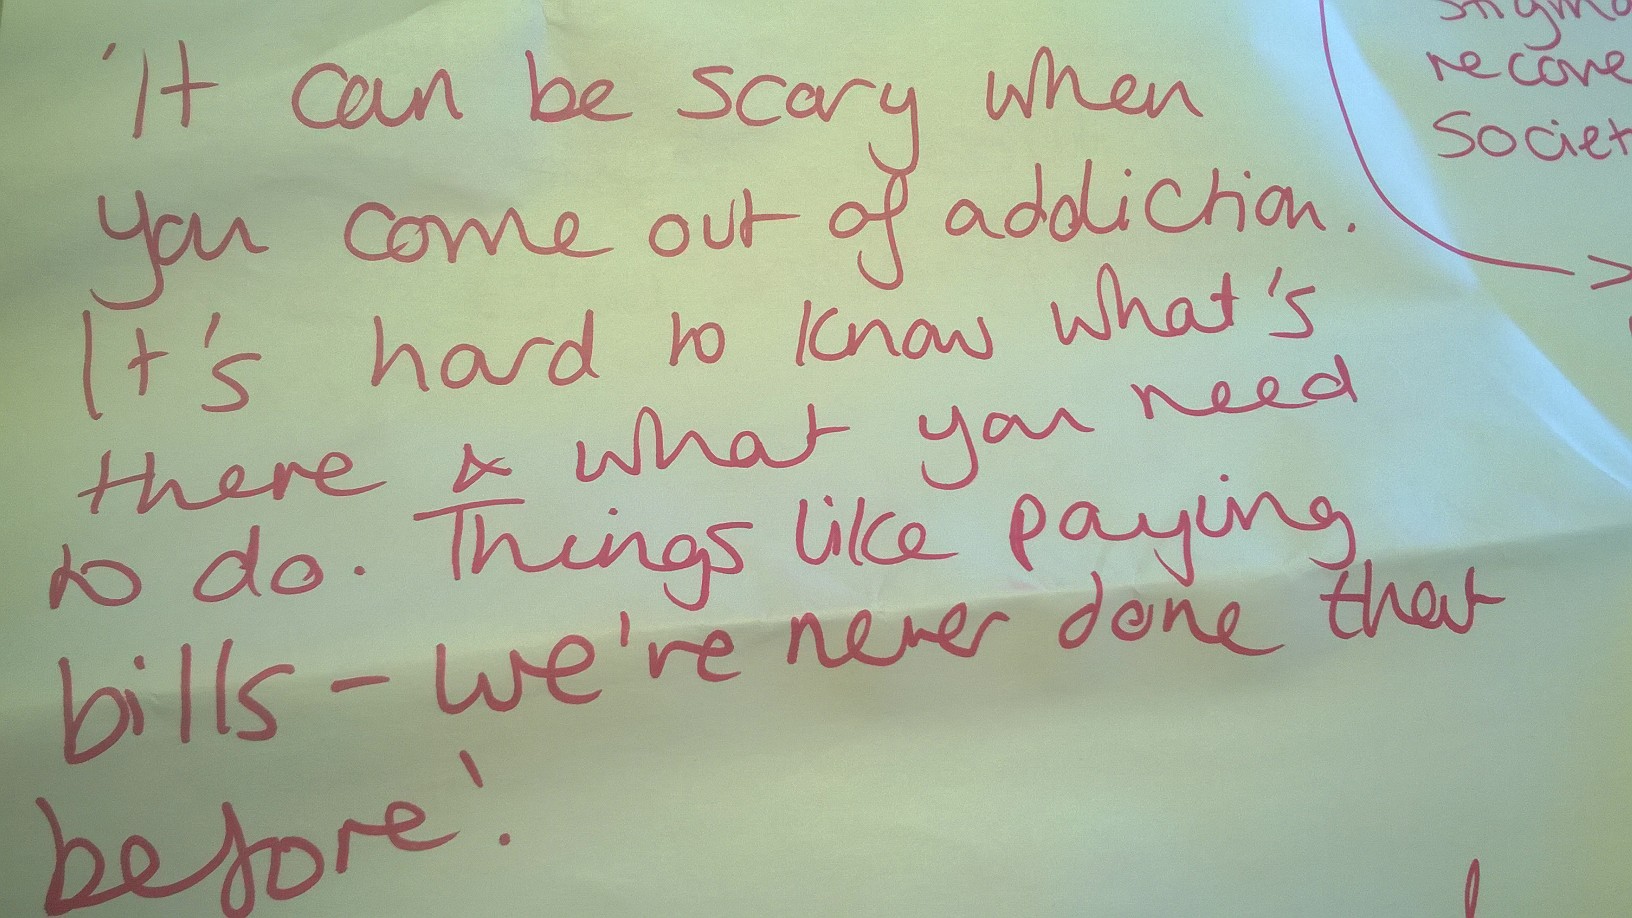 'It can be scary when
you come out of addiction.
It's hard to know what's
there & what you need
to do. Things like paying
bills - we're never done that
before'.
stigma
recove
Societ